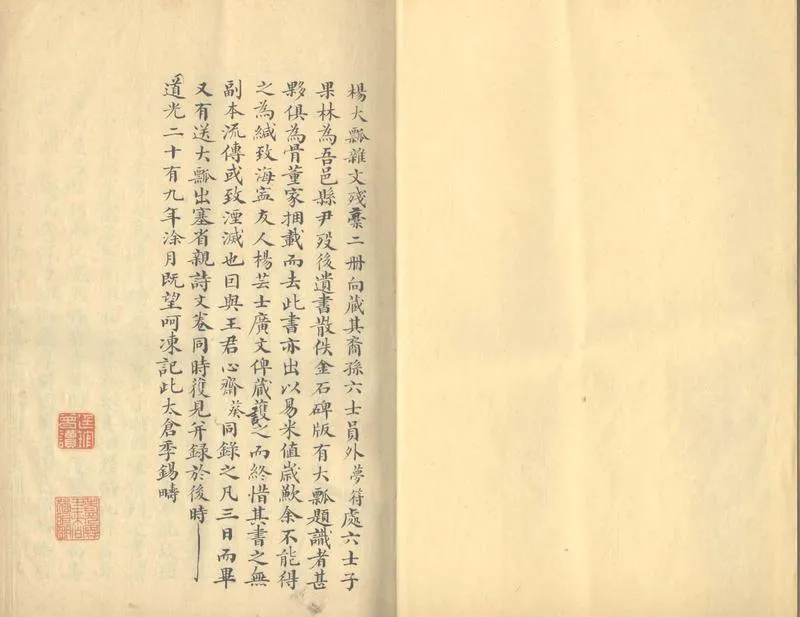 楊大瓢雜文殘稾二册向藏其裔孫六士員外夢符處六士子
果林為吾邑縣尹歿後遺書散佚金石碑版有大瓢題識者甚
夥俱為骨董家捆載而去此書亦出以易米值歲歉余不能得
之為緘致海寍友人楊芸士廣文俾藏護之而終惜其書之無
副本流傳或致湮滅也因與王君心齋葵同錄之凡三日而畢
又有送大瓢出塞省親詩文卷同時獲見并録於後時
道光二十有九年涂月既望呵凍記此太倉季錫疇